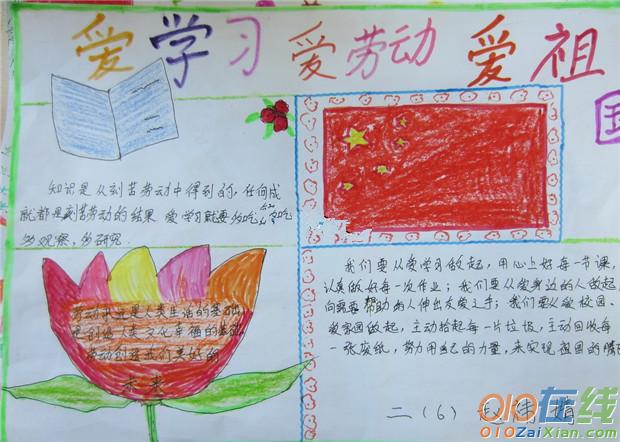 爱学习 爱劳动 爱祖
国
知识是从刻苦劳动中得到的,任何成
就都是刻苦劳动的结果 爱学习就要多
多观察,多研究.
劳动永远是人类生活的基础,
是创造人类文化幸福的基础
劳动创造我们美好的
未来
我们要从爱学习做起,用心上好每一节课,
认真做好每一次作业;我们要从爱身边的人做起,
向需要帮助的人伸出友爱之手;我们要从爱校园、
爱家园做起,主动拾起每一片垃圾,主动回收每
一张废纸,努力用自己的力量,来实现祖国的
二(6)
010在线
010ZaiXian.Com